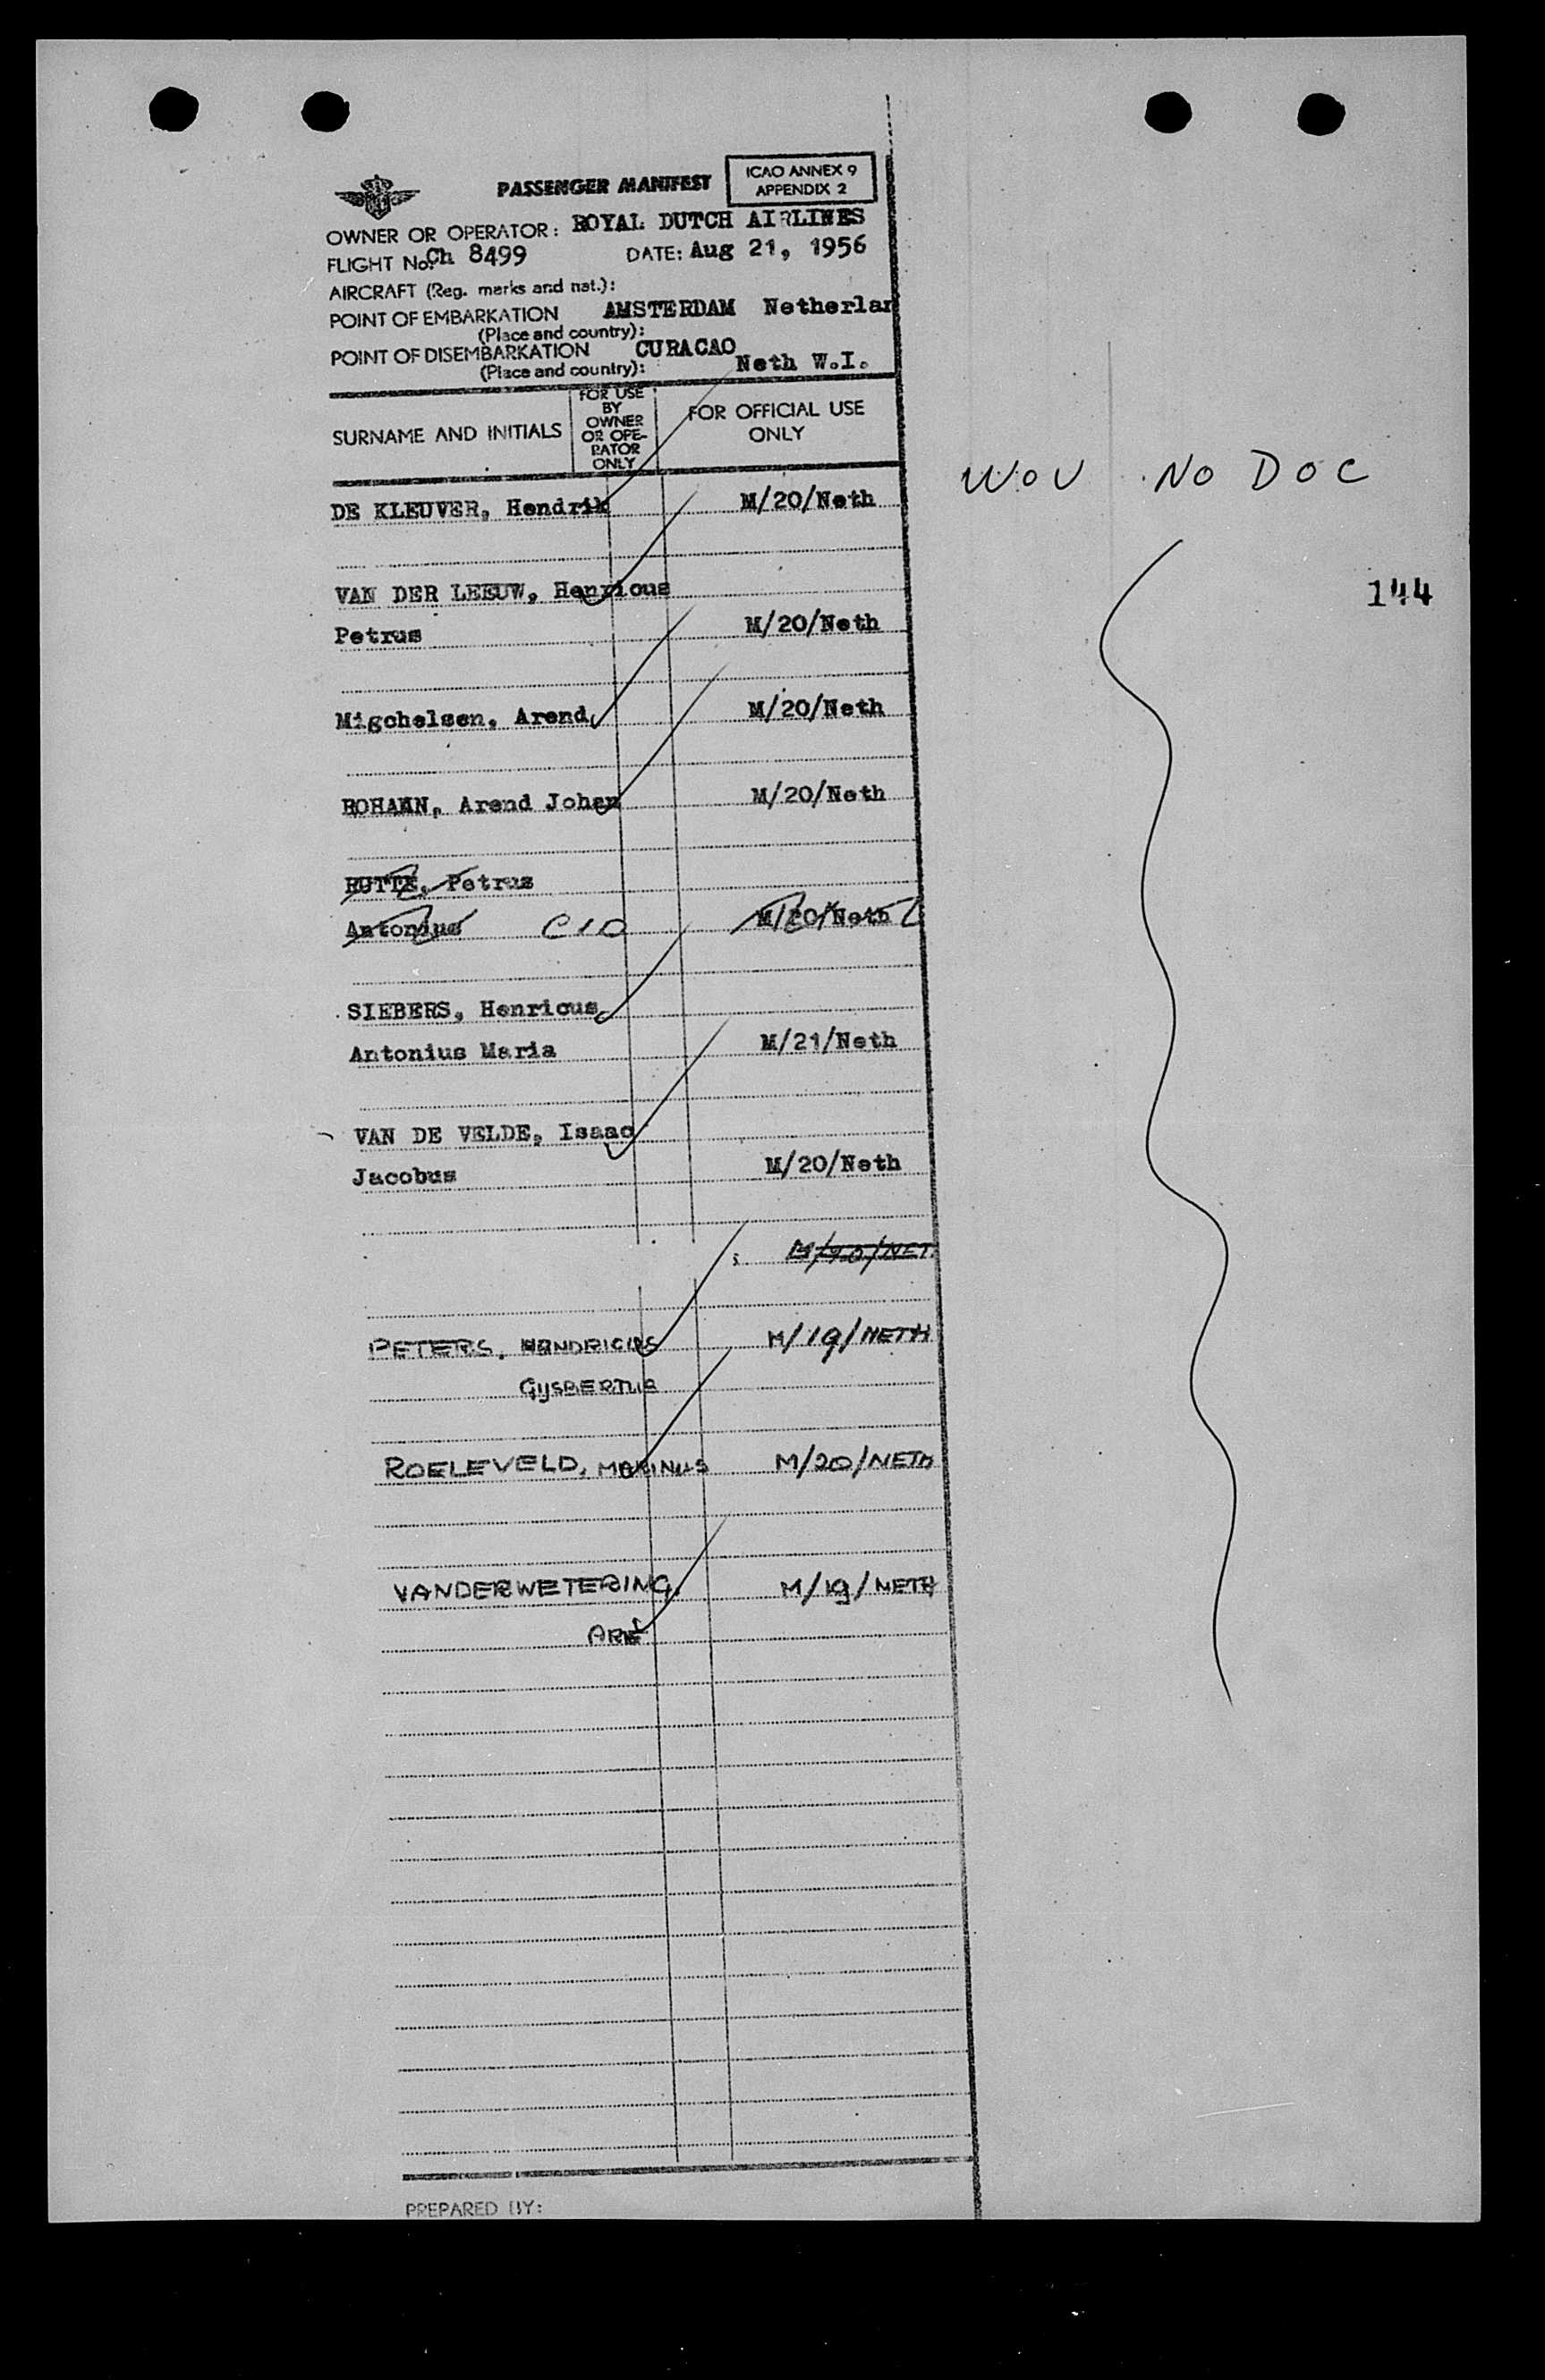 PASSENGER MANIFEST
ICAO ANNEX 9
APPENDIX 2
OWNER OR OPERATOR: ROYAL DUTCH AIRLINES
FLIGHT No. Ch 8499 DATE: Aug 21, 1956
AIRCRAFT (Reg. marks and nat.):
POINT OF EMBARKATION AMSTERDAM Netherlan
(Place and country):
POINT OF DISEMBARKATION CURACAO
(Place and country): Neth W.I.
SURNAME AND INITIALS
FOR USE
BY
OWNER
OR OPE-
RATOR
ONLY
FOR OFFICIAL USE
ONLY
WOV NO DOC
DE KLEUVER, Hendrik M/20/Neth
144
VAN DER LEEUW, Henricus
Petrus M/20/Neth
Migchelsen, Arend M/20/Neth
BOHAMN, Arend Johan M/20/Neth
RUTTE, Petrus
Antonius C/O M/20/Neth
SIEBERS, Henricus
Antonius Maria M/21/Neth
VAN DE VELDE, Isaac
Jacobus M/20/Neth
M/20/NET
PETERS, HENDRICUS M/19/NETH
GIJSBERTUS
ROELEVELD, MARINUS M/20/NETH
VANDERWETERING, M/19/NETH
ARIE
PREPARED BY: